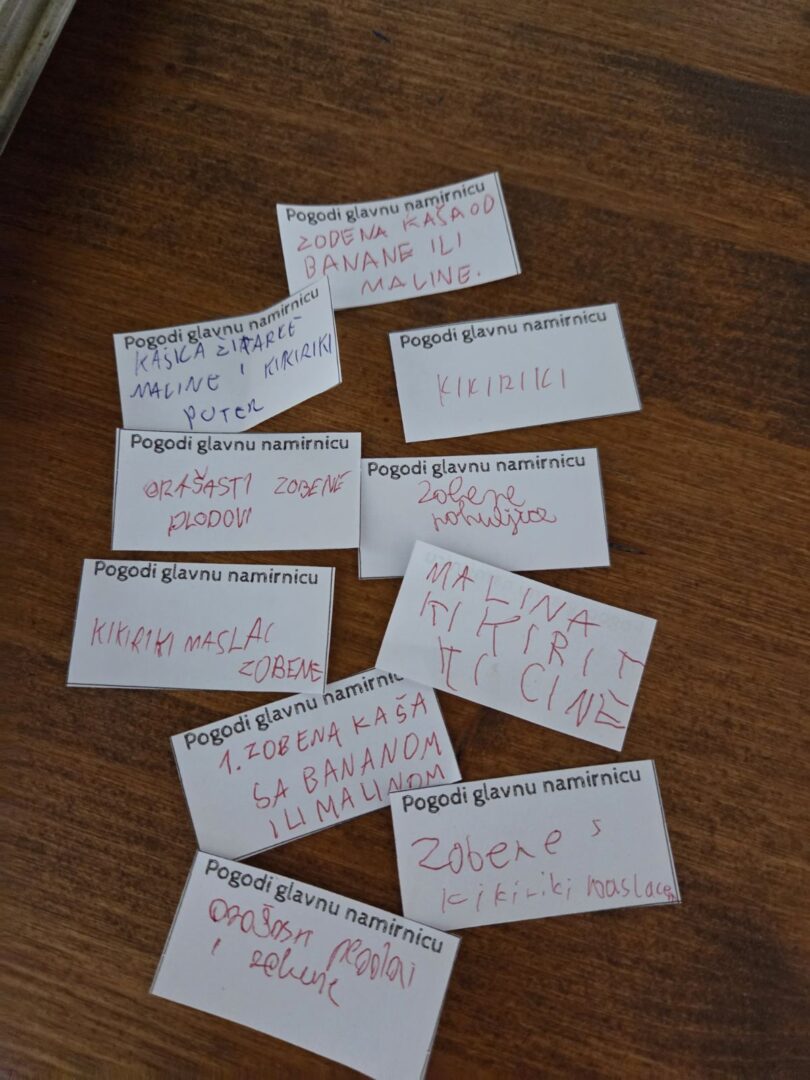 Pogodi glavnu namirnicu
ZODENA KAŠA OD
BANANE ILI
MALINE.
Pogodi glavnu namirnicu
KAŠICA ŽITARKE
MALINE I KIKIRIKI
PUTER
Pogodi glavnu namirnicu
KIKIRIKI
Pogodi glavnu namirnicu
ORAŠASTI ZOBENE
PLODOVI
Pogodi glavnu namirnicu
Zobene
pahuljice
Pogodi glavnu namirnicu
KIKIRIKI MASLAC
ZOBENE
MALINA
KIKIRI
KI CINE
Pogodi glavnu namirnic
1. ZOBENA KAŠA
SA BANANOM
ILI MALINOM
Pogodi glavnu namirnicu
Zobene s
kikiriki maslacem
Pogodi glavnu namirnicu
ORAŠASTI plodovi
i zobene